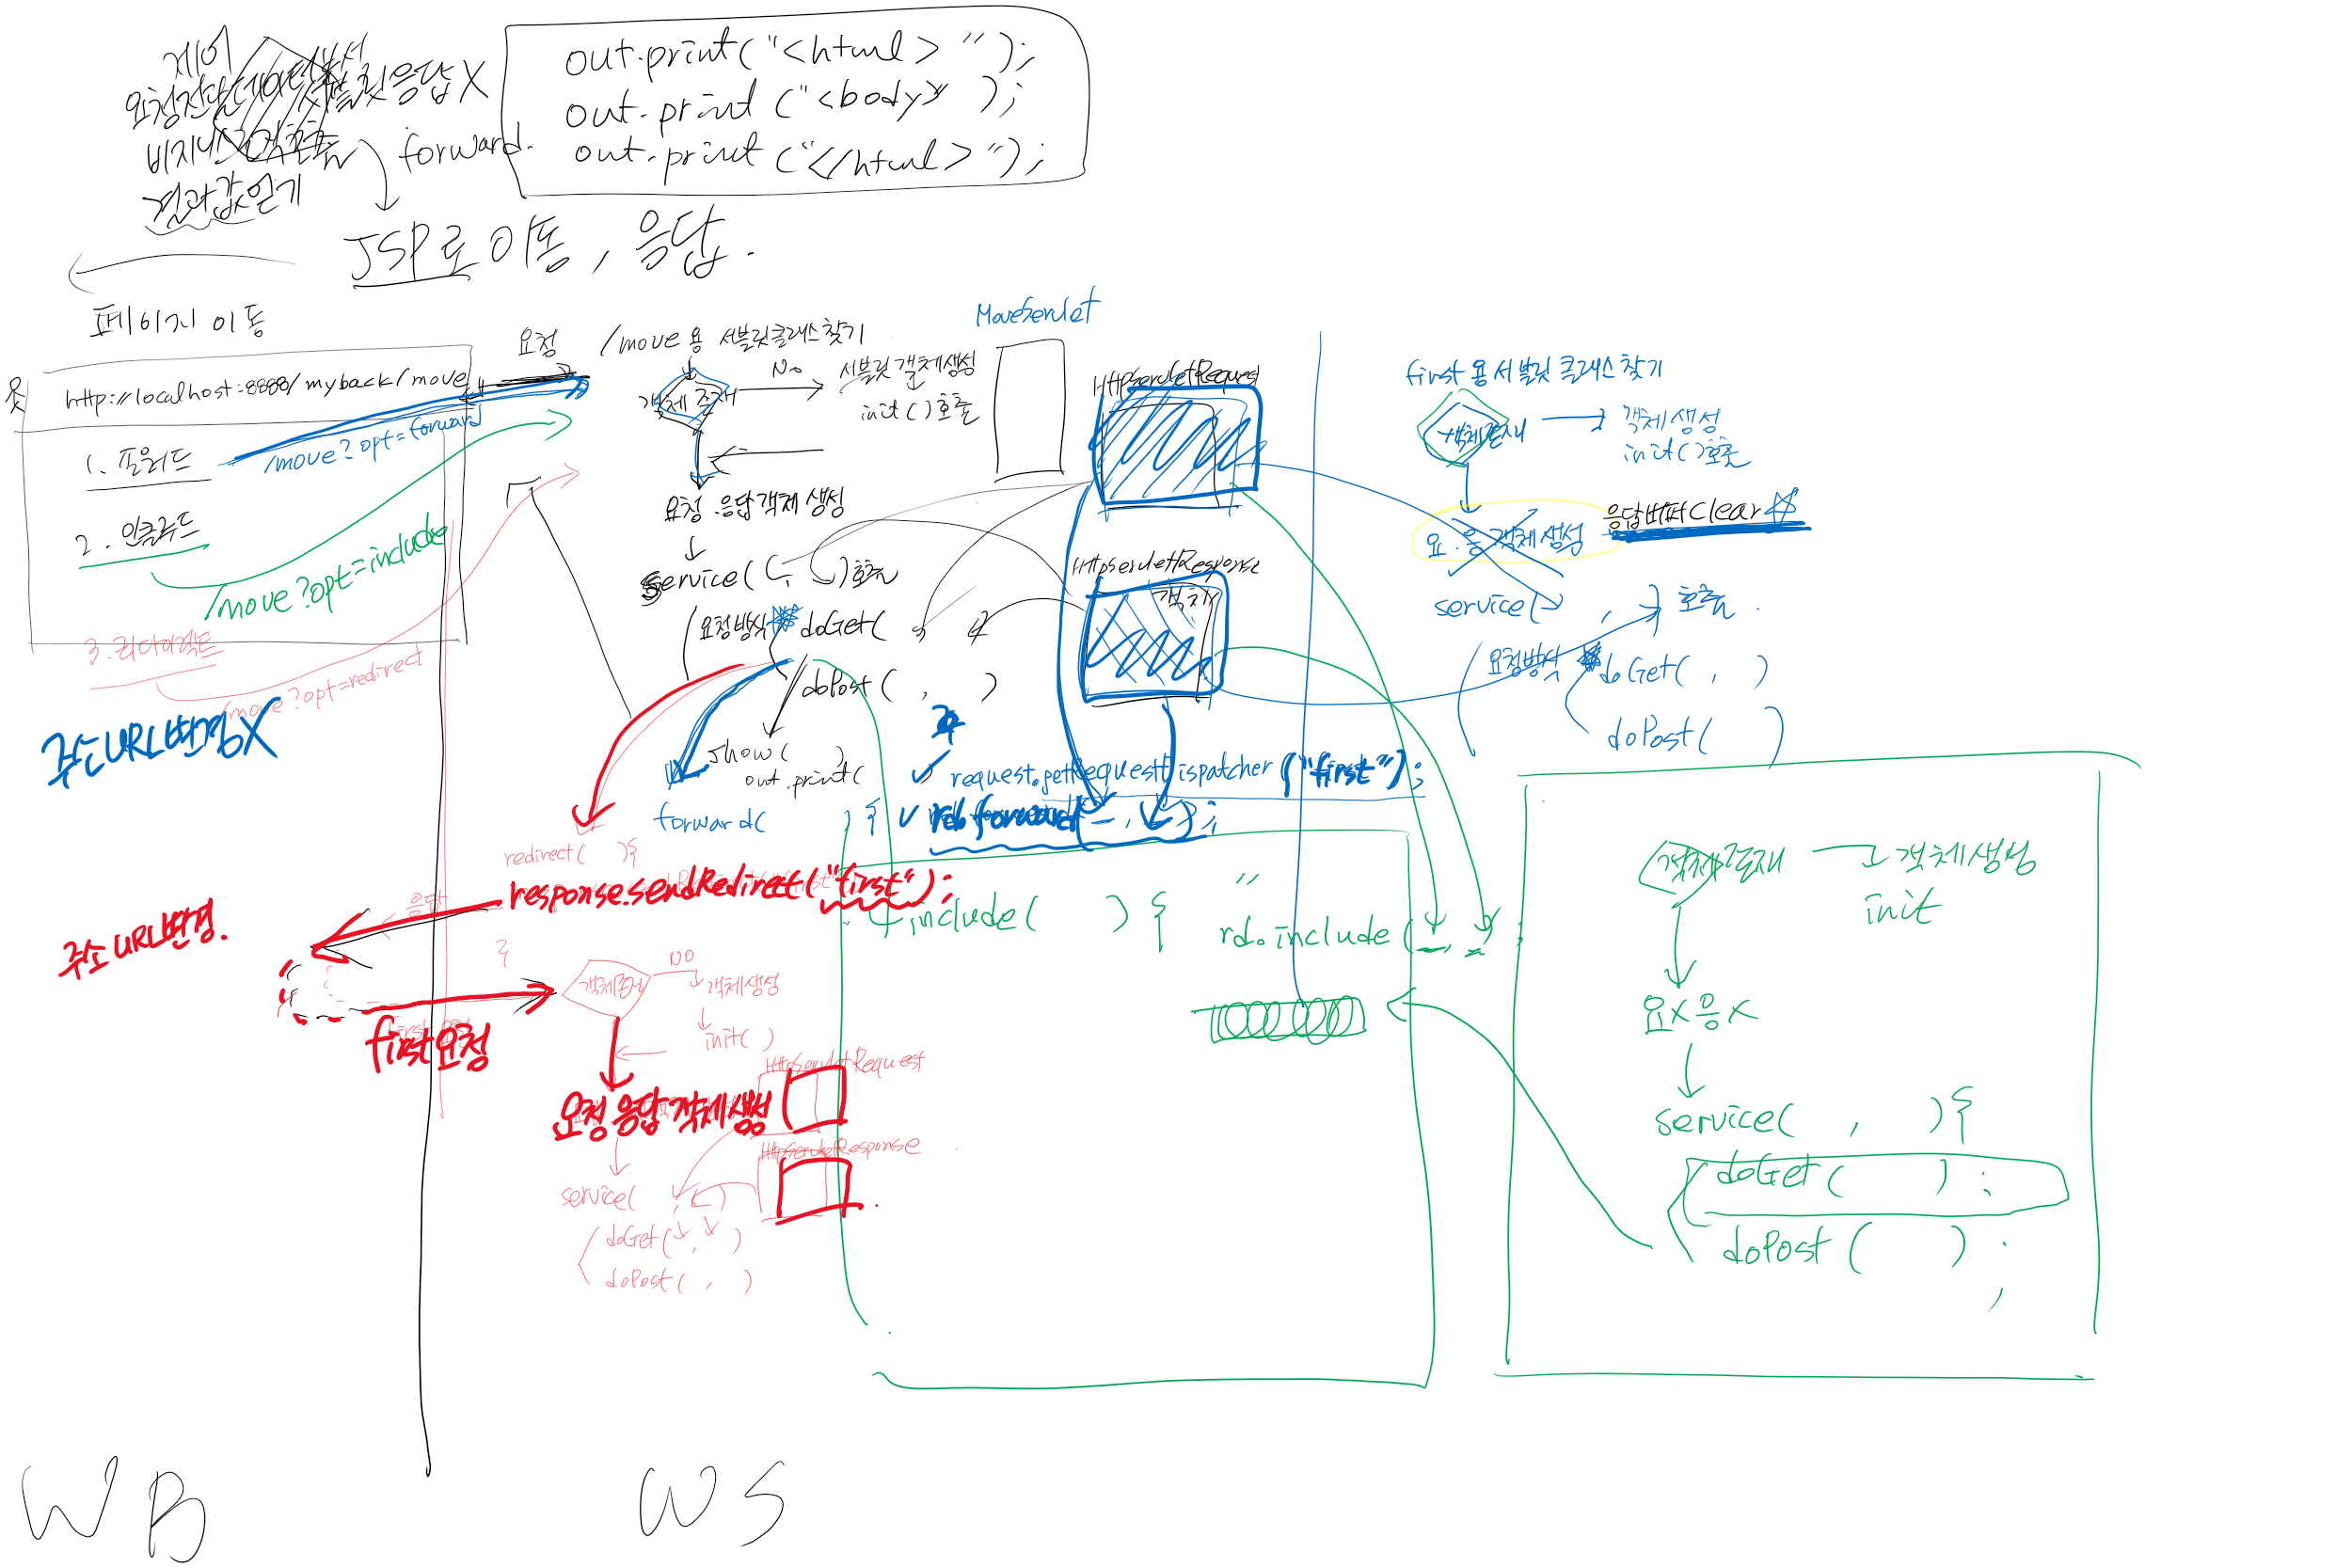 제어
요청전달데이터분석
서블릿응답X
비지니스로직호출
forward.
결과값얻기
JSP로 이동, 응답.
out.print("<html>");
out.print("<body>");
out.print("</html>");
페이지 이동
http://localhost:8888/myback/move
1. 포워드
/move?opt=forward
2. 인클루드
/move?opt=include
3. 리다이렉트
/move?opt=redirect
주소URL변경X
주소URL변경.
요청
/move 용 서블릿클래스찾기
객체 존재
No
서블릿 객체생성
init()호출
요청.응답객체 생성
service( , )호출
요청방식
doGet( , )
doPost( , )
show( )
out.print(
forward( ) {
request.getRequestDispatcher("first");
rd.forward( , );
MoveServlet
HttpServletRequest
HttpServletResponse
객체
first 용 서블릿 클래스찾기
객체존재
객체생성
init()호출
요.응 객체생성
응답버퍼Clear
service( , ) 호출.
요청방식
doGet( , )
doPost( )
redirect( ){
response.sendRedirect("first");
}
응답
first요청
객체존재
NO
객체생성
init( )
요청 응답 객체생성
HttpServletRequest
HttpServletResponse
service( , )
doGet( , )
doPost( , )
include( ) {
"
rd.include( , );
객체존재
객체생성
init
요X응X
service( , ){
doGet( );
doPost( );
WB
WS